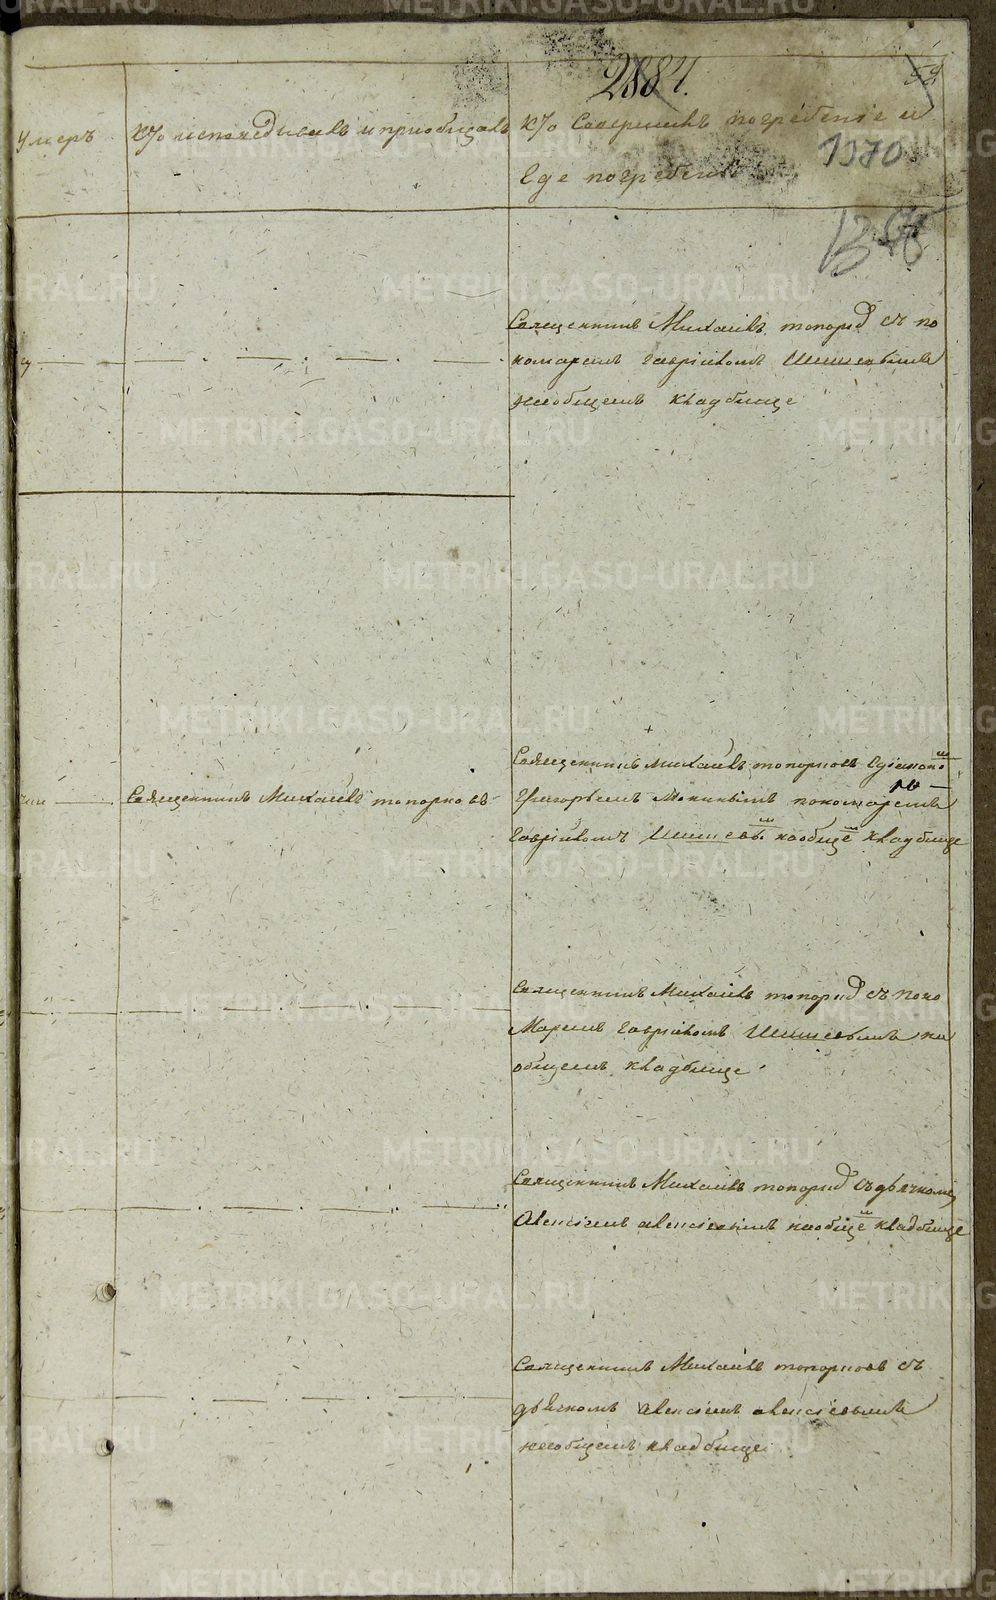 2884.
58
умеръ
Кто исповедывалъ и приобщалъ
Кто Совершалъ погребение и
Где погребены
1370
Священникъ Михаилъ топорко съ по
номаремъ гаврииломъ Шишевымъ
наобщемъ кладбище
Священникъ Михаилъ топорковъ
Священникъ михаилъ топорковъ
Григорьемъ пономаремъ
гаврииломъ Шишевы наобще кладбище
Священникъ Михаилъ топорко съ поно
Маремъ гаврииломъ Шишевымъ на
общемъ кладбище
Священникъ Михаилъ топорко съ дьячкомъ
Алексiемъ алексiевымъ наобще кладбище
Священникъ Михаилъ топорковъ съ
дьячкомъ алексiемъ алексiевымъ
наобщемъ кладбище
METRIKI.GASO-URAL.RU